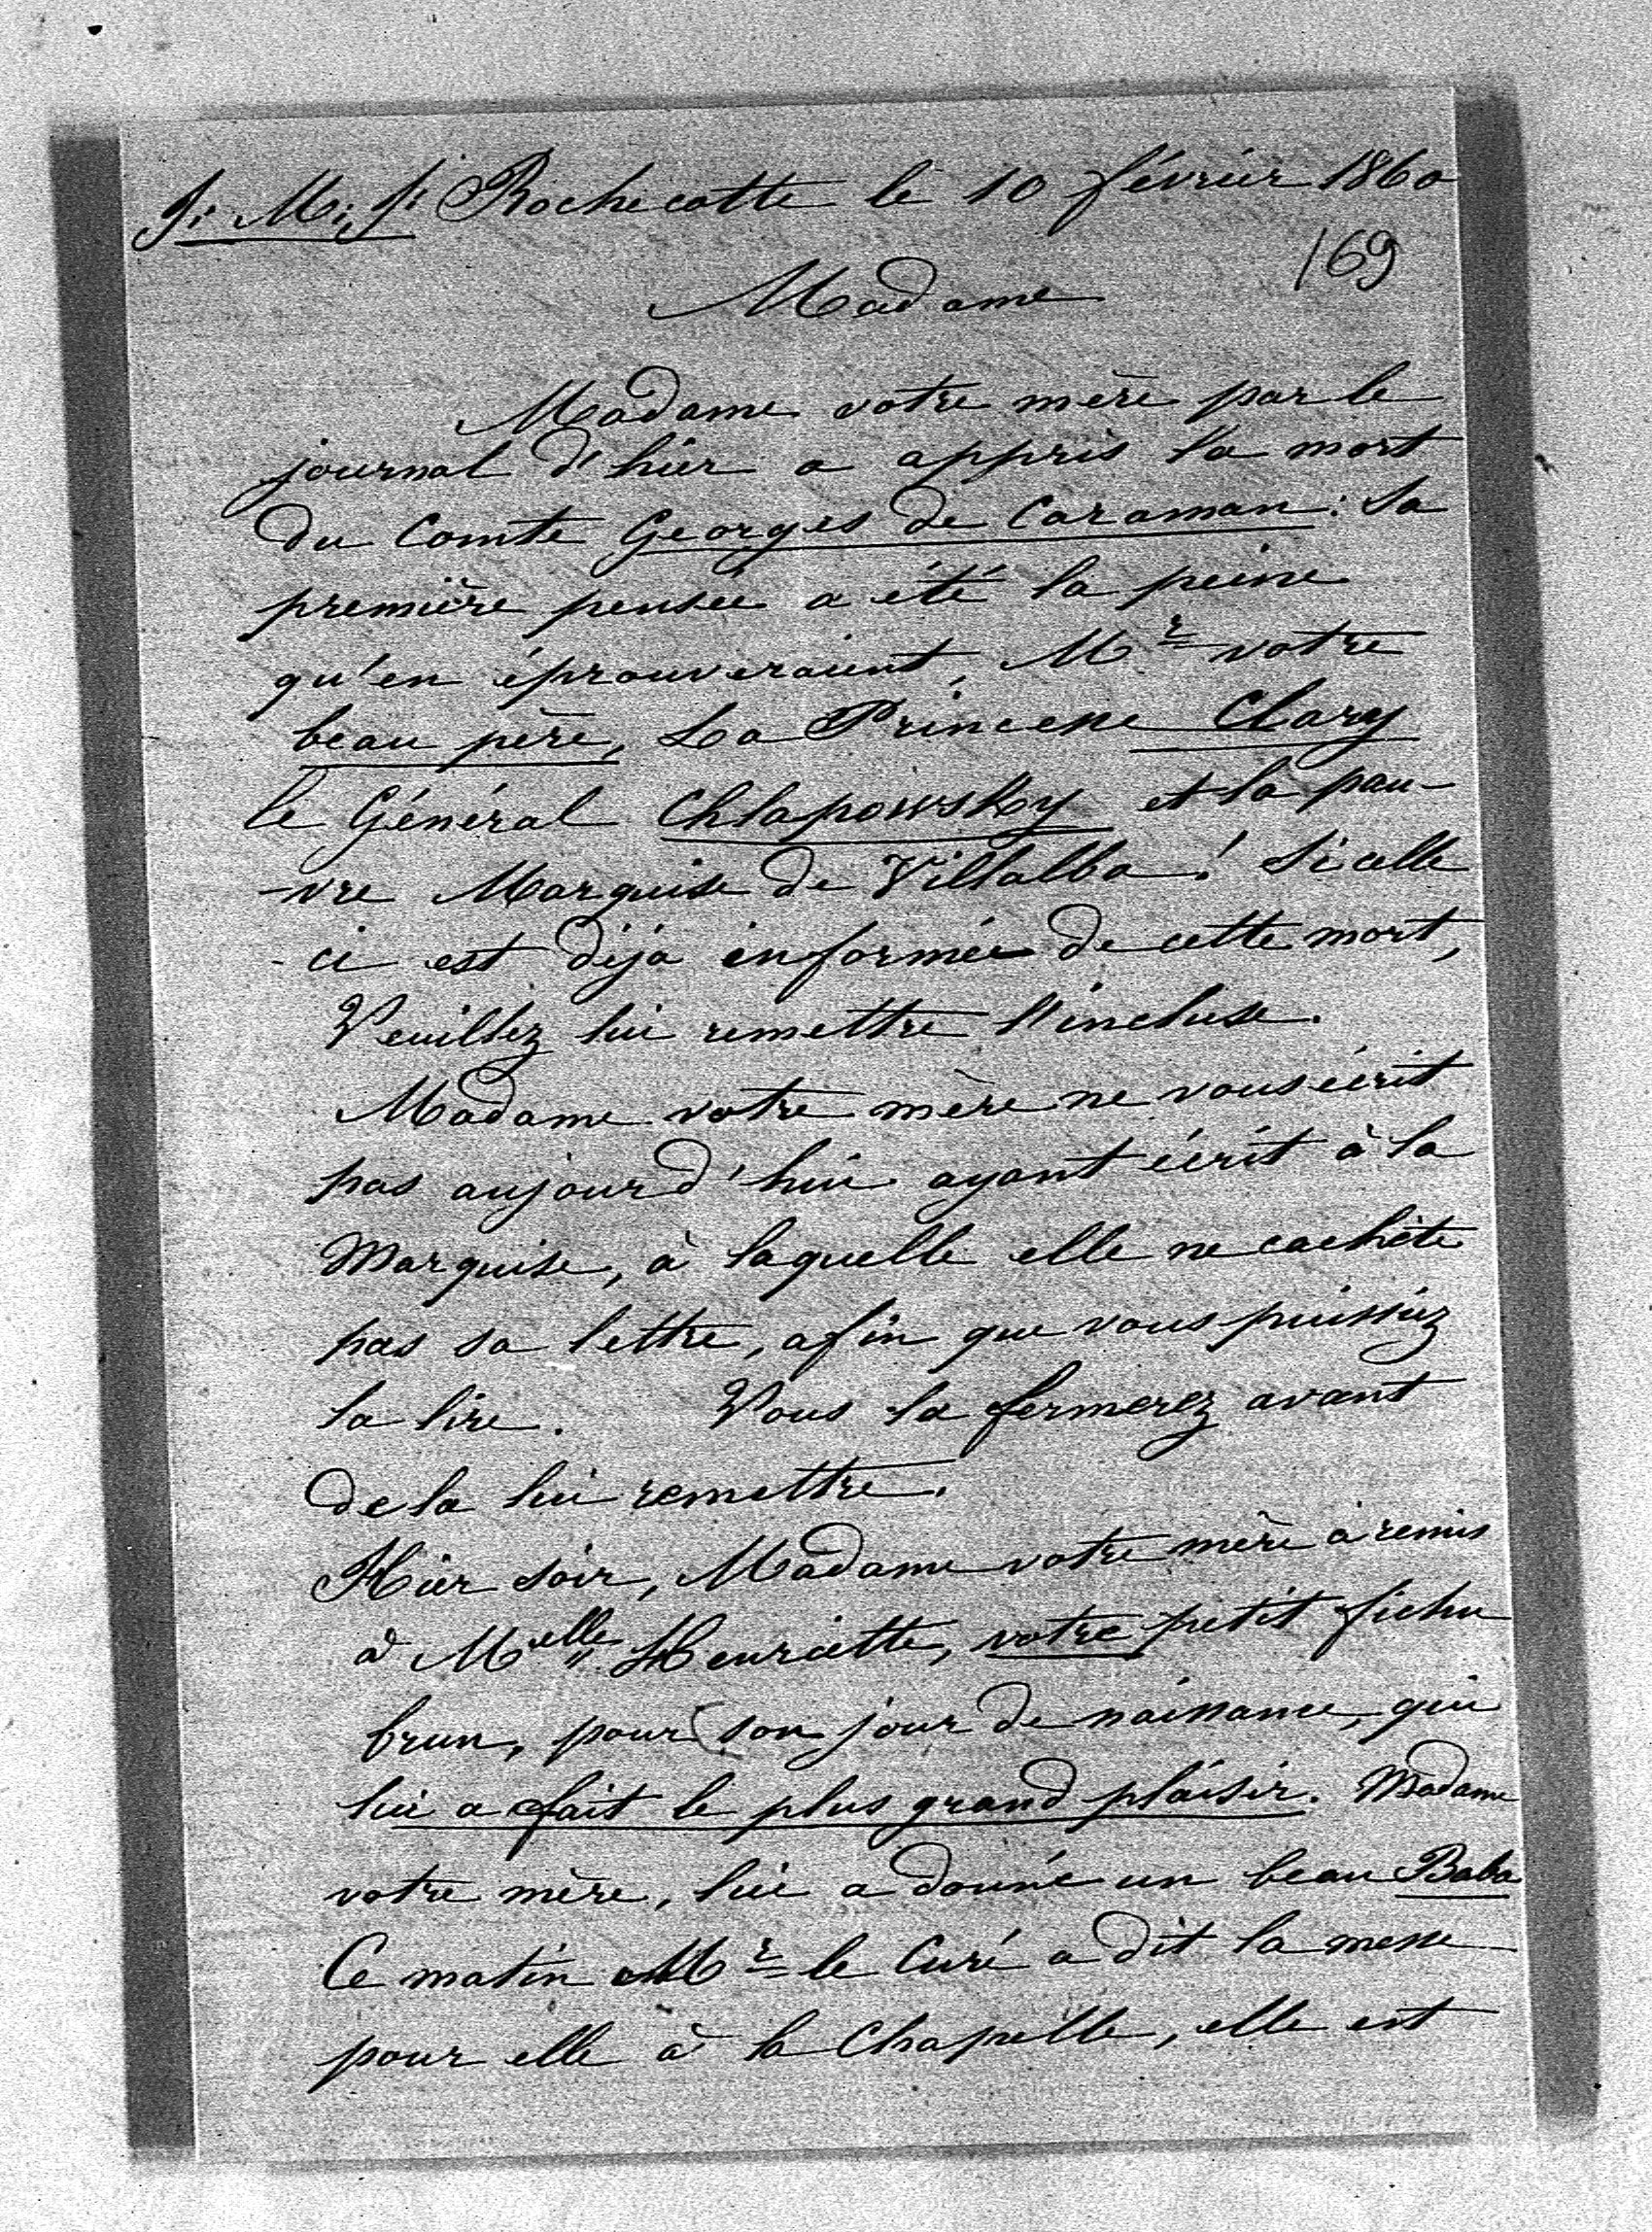 J. M. J. Rochecotte le 10 février 1860
169
Madame
Madame votre mère par le
journal d'hier a appris la mort
du Comte Georges de Caraman : sa
première pensée a été la peine
qu'en éprouveraient, Mr votre
beau père, La Princesse Clary
le Général Chlapowsky et la pau-
-vre Marquise de Villalba ! Si celle
-ci est déjà informée de cette mort,
Veuillez lui remettre l'incluse.
Madame votre mère ne vous écrit
pas aujourd'hui ayant écrit à la
Marquise, à laquelle elle ne cachète
pas sa lettre, afin que vous puissiez
la lire. Vous la fermerez avant
de la lui remettre.
Hier soir, Madame votre mère a remis
à Melle Henriette, votre petit fichu
brun, pour son jour de naissance, qui
lui a fait le plus grand plaisir. Madame
votre mère, lui a donné un beau Baba
Ce matin Mr le Curé a dit la messe
pour elle à la Chapelle, elle est